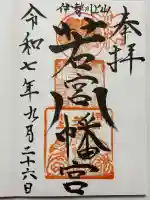 奉拝
伊勢
山
若宮八幡宮
令和七年九月二十六日